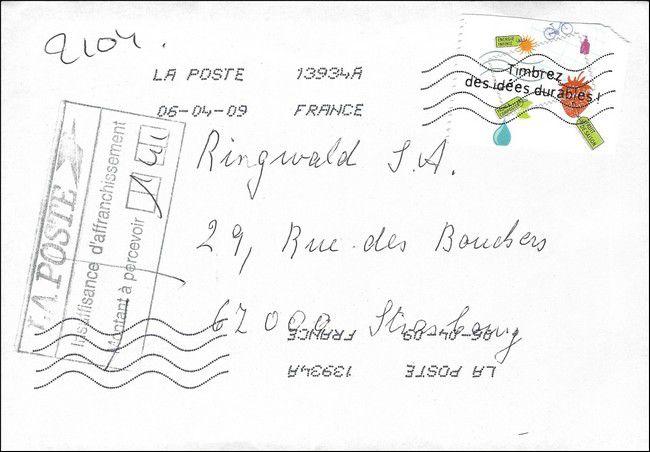 2104.
LA POSTE 13934A
06-04-09 FRANCE
ENERGIE
Timbrez
des idées durables !
FRUIT DE SAISON
LA POSTE
Insuffisance d'affranchissement
Montant à percevoir
Ringwald S.A.
29, Rue des Bouchers
67000 Strasbourg
LA POSTE 13934A
06-04-09 FRANCE